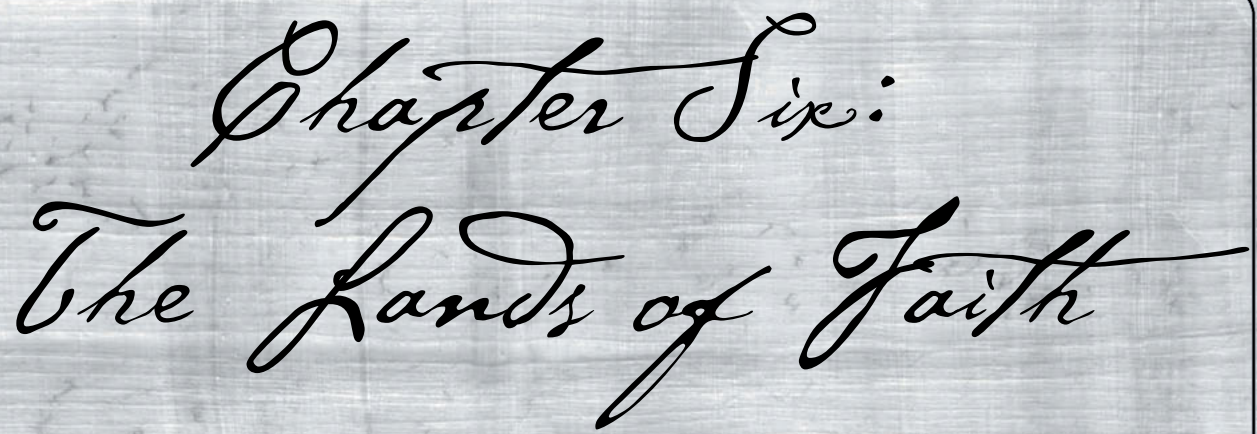 Chapter Six:
The Lands of Faith